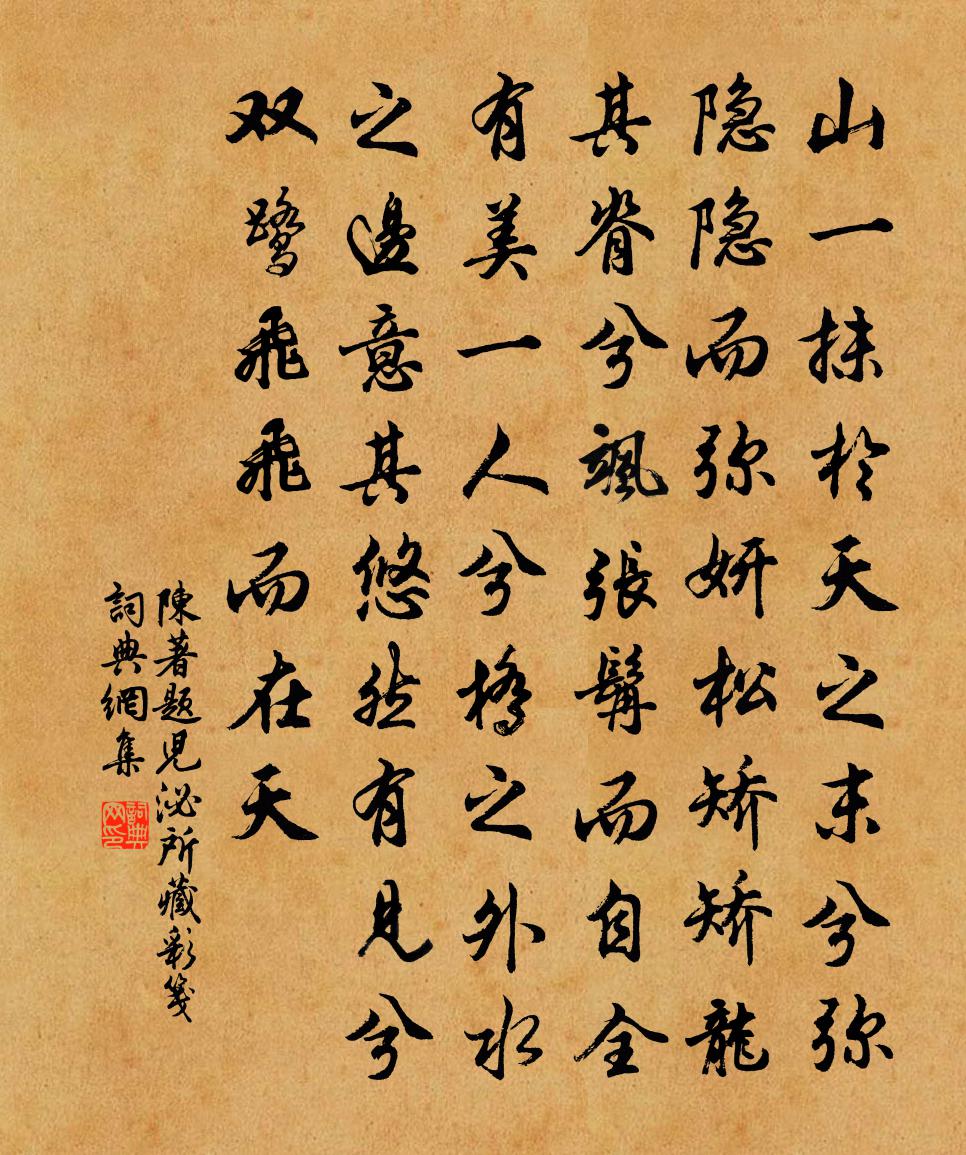 山一抹於天之末兮弥
隐隐而弥妍松矫矫龍
其脊兮飒張髯而自全
有美一人兮橋之外水
之邊意其悠然有見兮
双鹭飛飛而在天
陳著題兒泌所藏彩箋
詞典網集